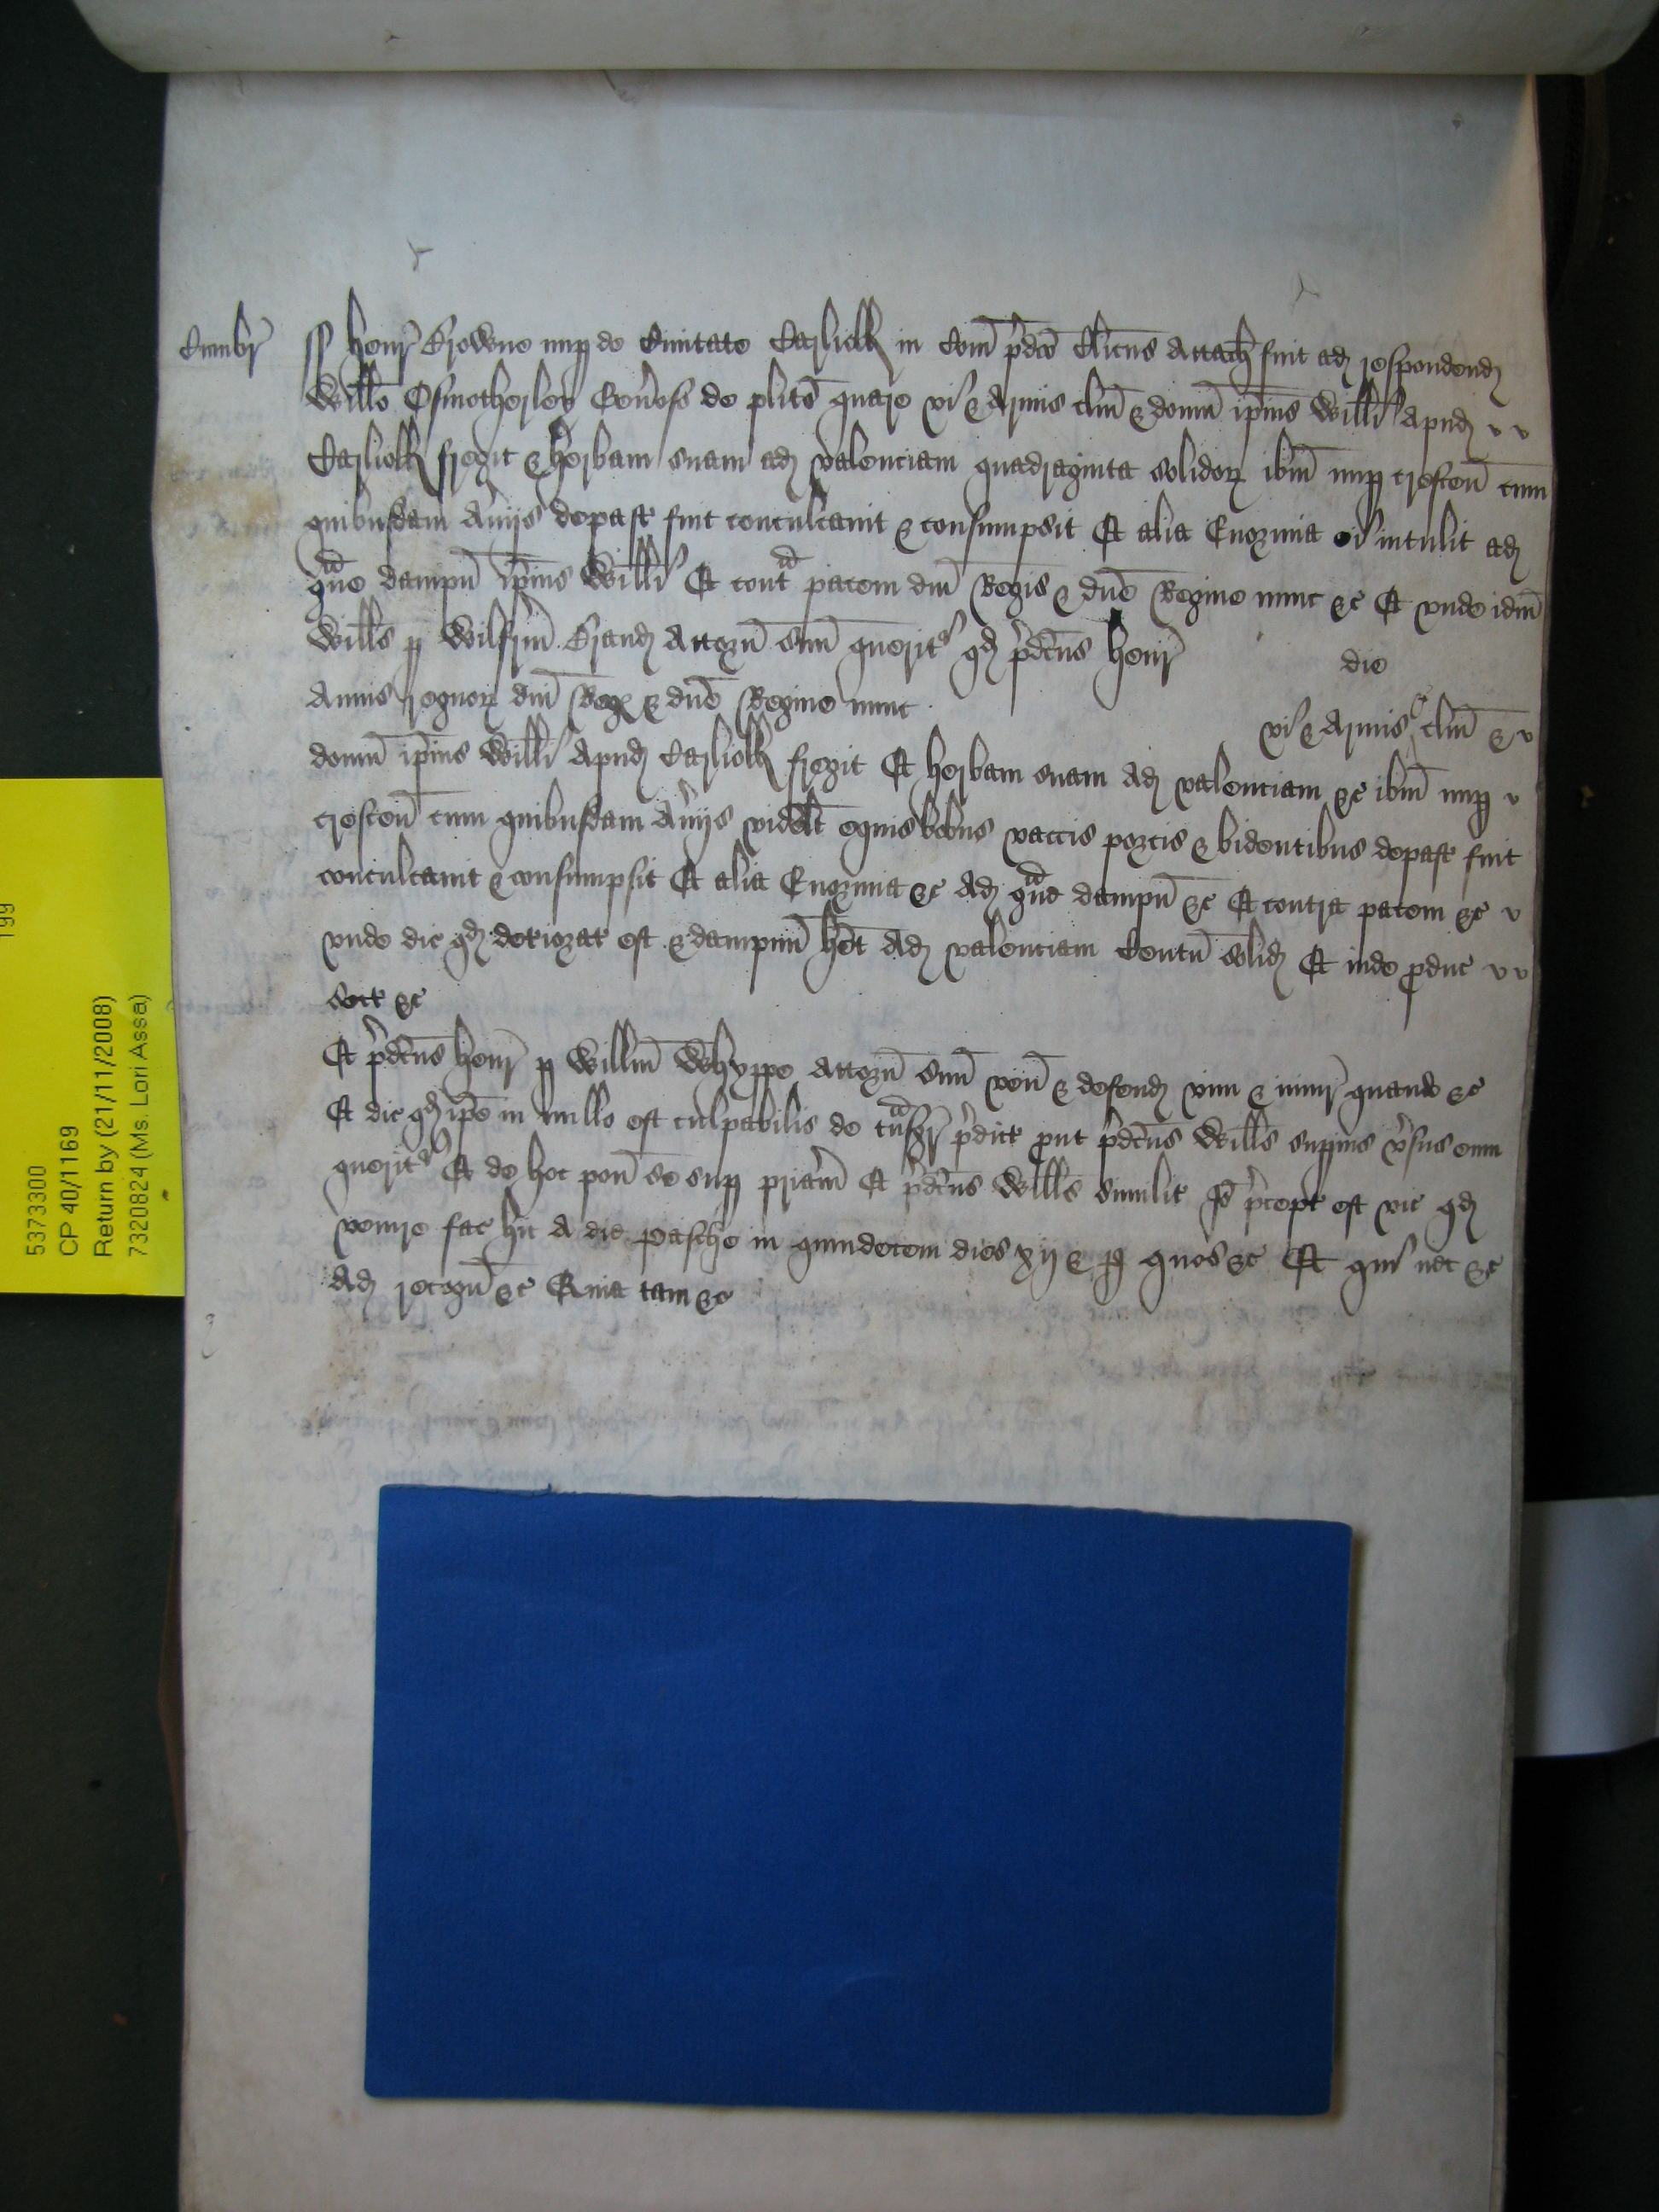 Cumbr ss Henr Browne nup de Civitate Carliolk in Com pdco Clicus Attach fuit ad respondend
Willo Osmotherley Gen'oso de plito quare vi & Armis clm & domu ipius Willi Apud
Carliolk fregit & herbam suam ad valenciam quadraginta solidor ibm nup crescen cum
quibusdam Aviijs depast fuit conculcavit & consumpsit Et alia Enormia ei intulit ad
gue dampn ipius Willi Et cont pacem dni Regis & dne Regine nunc &c Et unde idm
Wills p Wilfrm Attorn suu querit qd pdcus Henr die
Annis regnor dni Reg & dne Regine nunc vi & Armis clm &
domu ipius Willi Apud Carliolk fregit Et herbam suam Ad valenciam &c ibm nup
crescen cum quibusdam Aviijs videlt equis bobus vaccis porcis & bidentibus depast fuit
conculcavit & consumpsit Et alia Enormia &c Ad gue dampn &c Et contra pacem &c
unde dic qd deteriorat est & dampnu het Ad valenciam Centu solid Et inde pduc
sect &c
Et pdcus Henr p Willm Whyppe Attorn suu ven & defend vim & iniur quando &c
Et dic qd ipe in nullo est culpabilis de tnsgr pdict put pdcus Wills supius vsus eum
querit Et de hoc pon se sup priam Et pdcus Wills similit Io pcept est vic qd
venire fac hic A die Pasche in quindecem dies xij &c p quos &c Et qui nec &c
Ad recogn &c Quia tam &c
5373300
CP 40/1169
Return by (21/11/2008)
7320824 (Ms. Lori Assa)
199